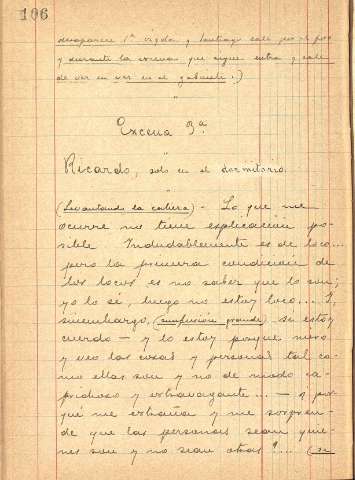 106
desaparece 1º Vigda y Santiago sale por el foro
y durante la escena que sigue entra y sale
de vez en vez en el gabinete.)
"
Excena 3ª
"
Ricardo, solo en el dormitorio.
"
(Levantando la cabeza) - Lo que me
ocurre no tiene explicación po-
sible. Indudablemente es de loco...
pero la primera condición de
los locos es no saber que lo son;
yo lo sé, luego no estoy loco... Y,
sinembargo, (confusión grande) si estoy
cuerdo - y lo estoy porque miro
y veo las cosas y personas tal co-
mo ellas son y no de modo ca-
prichoso y extravagante... - ¿ por-
qué me extraña y me sorpren-
de que las personas sean quie-
nes son y no sean otras?... (se